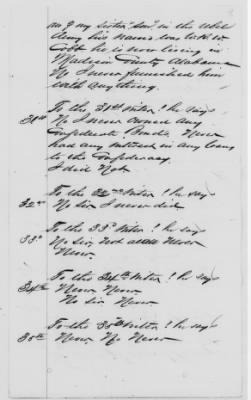 one of my sister's sons in the Rebel
Army his name was
Cobb he is now living in
Madison County Alabama
No I never furnished him
with anything.
To the 31st Inter! he says
31st No I never owned any
Confederate Bonds Never
had any interest in any loans
to the Confederacy.
I did Not
To the 32nd Inter! he says
32nd No Sir I never did
To the 33d Inter! he says
33d No Sir, Not Never
Never.
To the 34th Inter! he says
34th Never Never.
No Sir Never
To the 35th Inter! he says
35th Never No Never